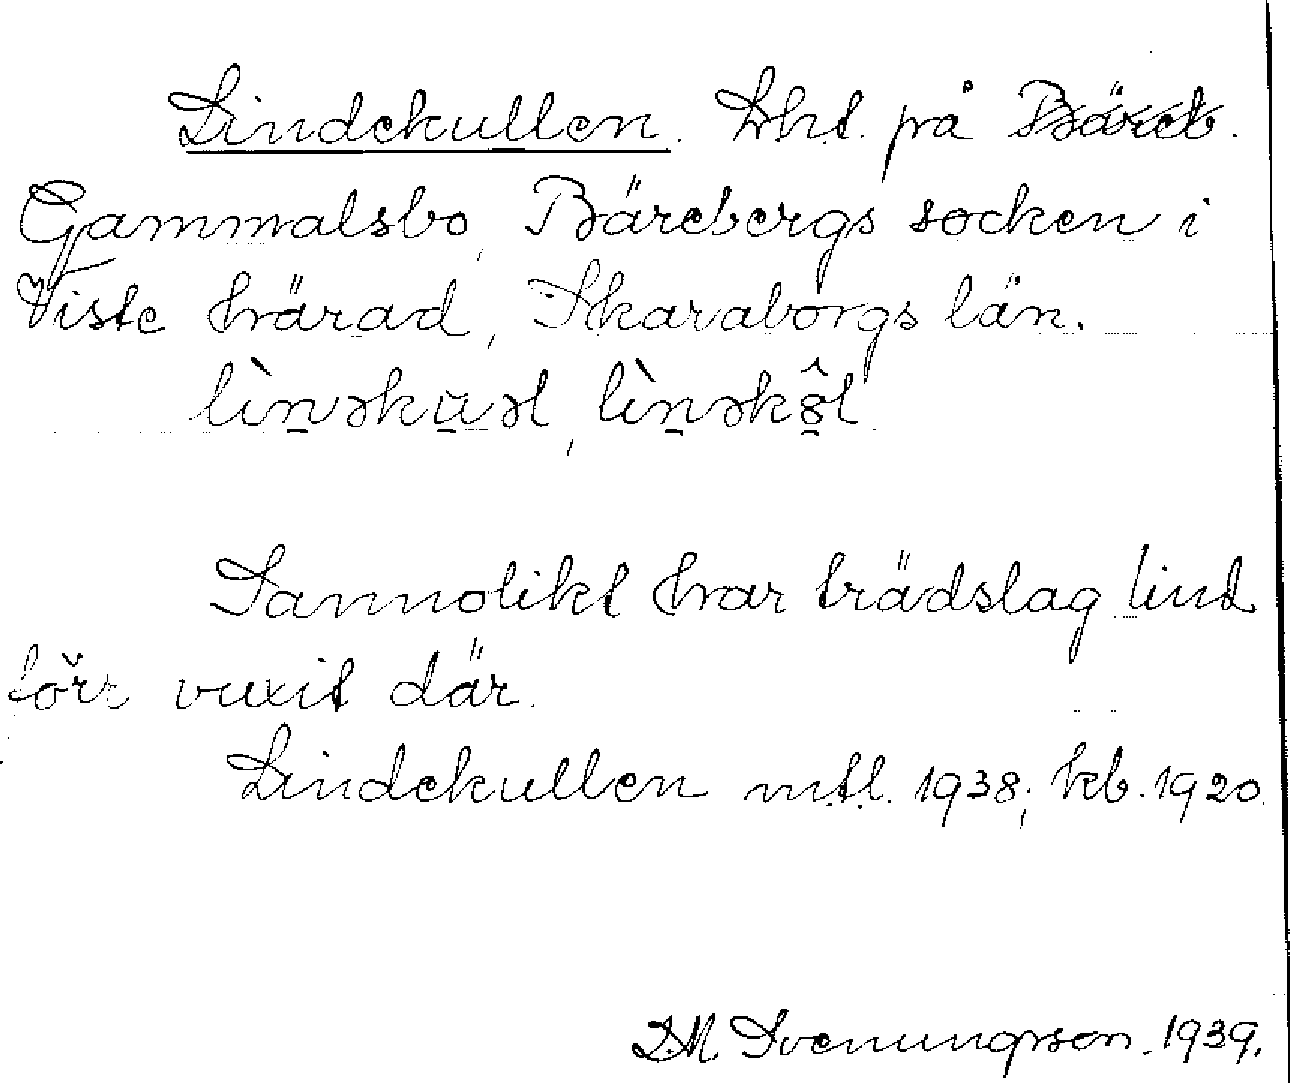 Lindekullen. Lht. på
Gammalsbo, Bärebergs socken i
Viste härad, Skaraborgs län.
lìnəkŭəl, lìnəkôl.
Sannolikt har trädslag lind
förr vuxit där.
Lindekullen mtl. 1938; kb. 1920.
Svenungsson. 1939.